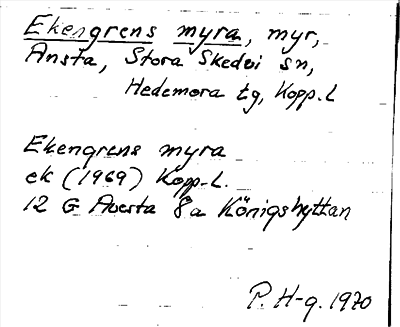 Ekengrens myra, myr,
Ansta, Stora Skedvi sn,
Hedemora tg, Kopp.l
Ekengrens myra
ek (1969) Kopp-L.
12 G Avesta 8a Königshyttan
P. H-g. 1970